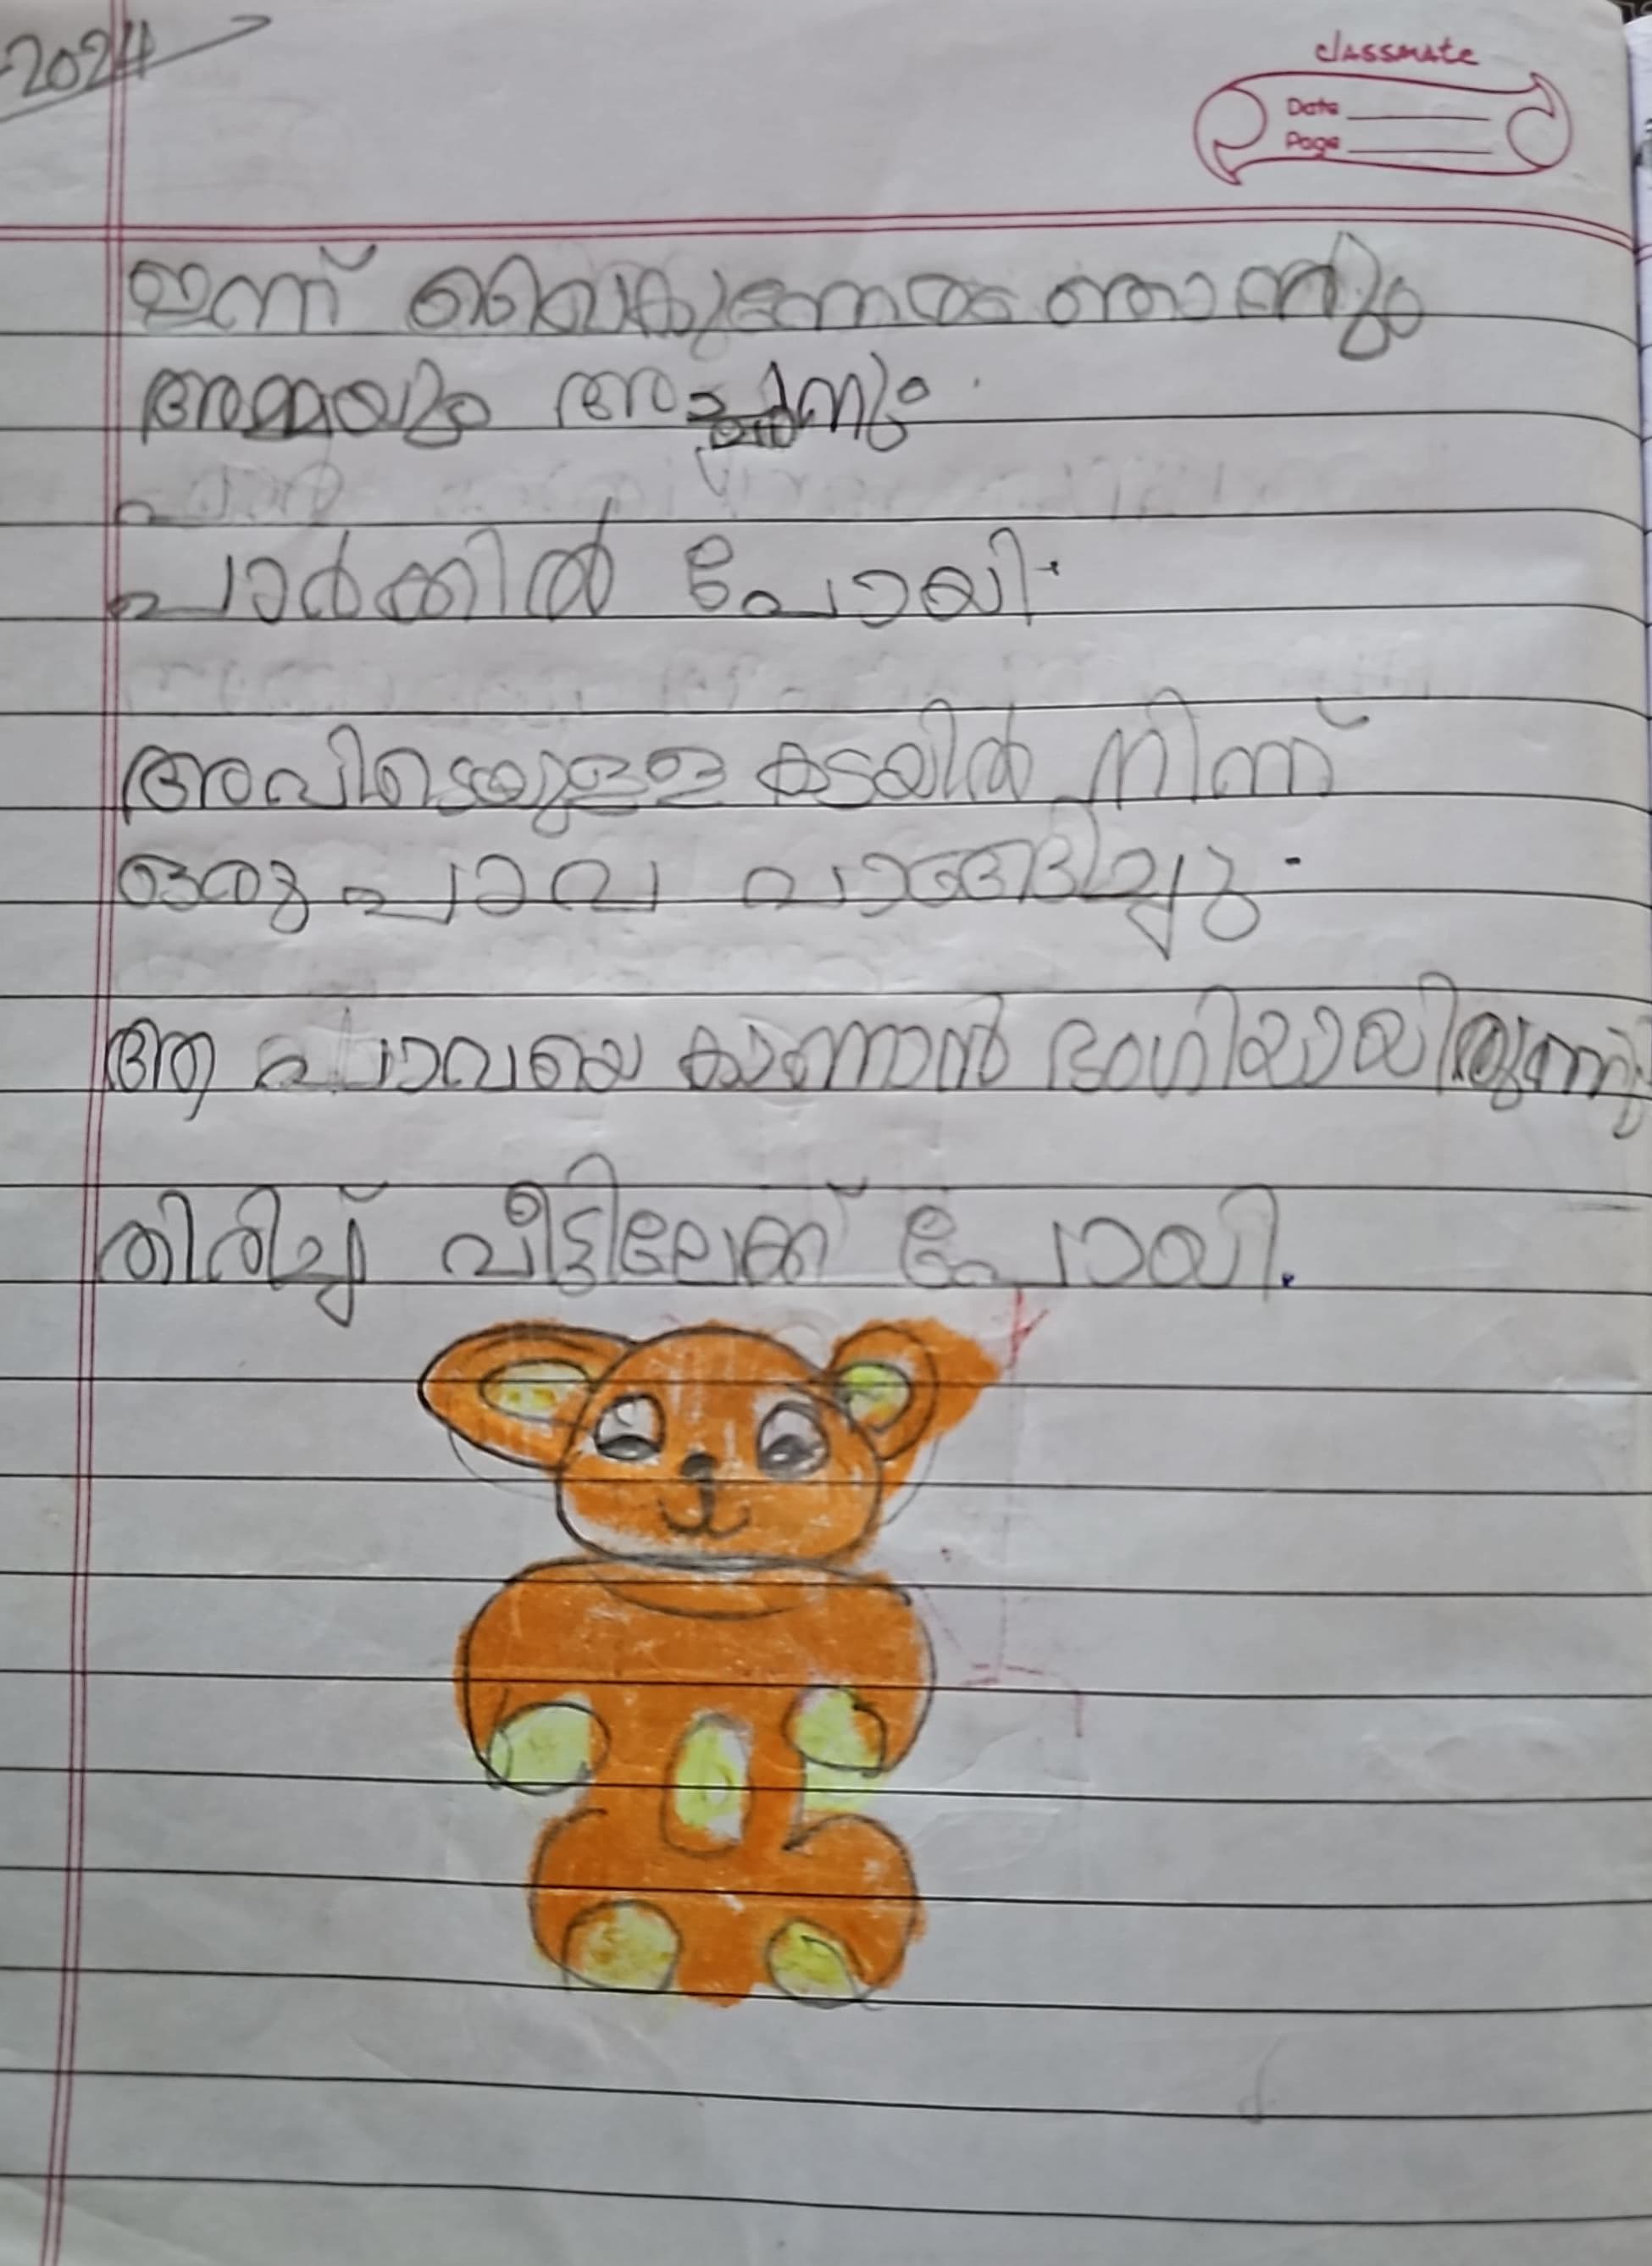 2024
classmate
Date
Page
ഇന്ന് വൈകുന്നേരം ഞാനും
അമ്മയും അച്ഛനും.
പാർക്കിൽ പോയി.
അവിടെയുള്ള കടയിൽ നിന്ന്
ഒരു പാവ വാങ്ങിച്ചു.
ആ പാവയെ കാണാൻ ഭംഗിയായിരുന്നു
തിരിച്ച് വീട്ടിലേക്ക് പോയി.